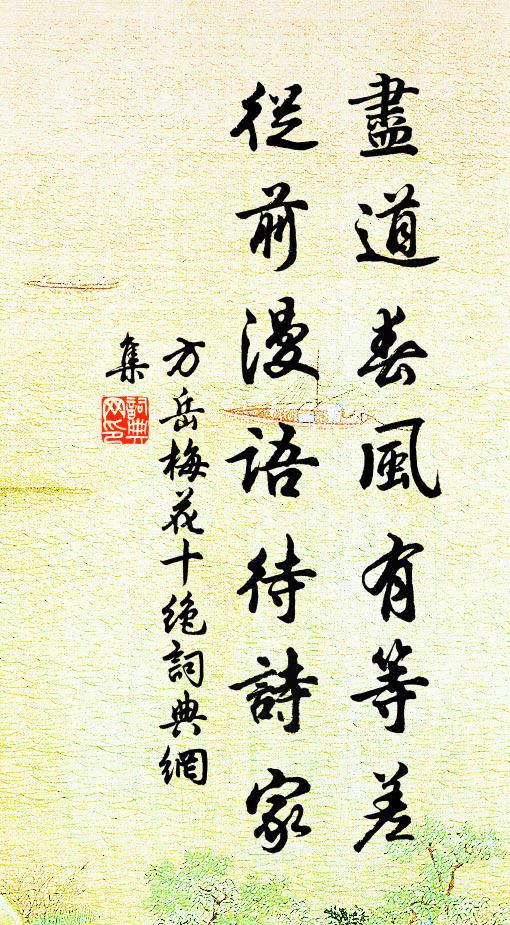 盡道春風有等差
從前漫語待詩家
方岳梅花十絶詞典網
集
詞典網印